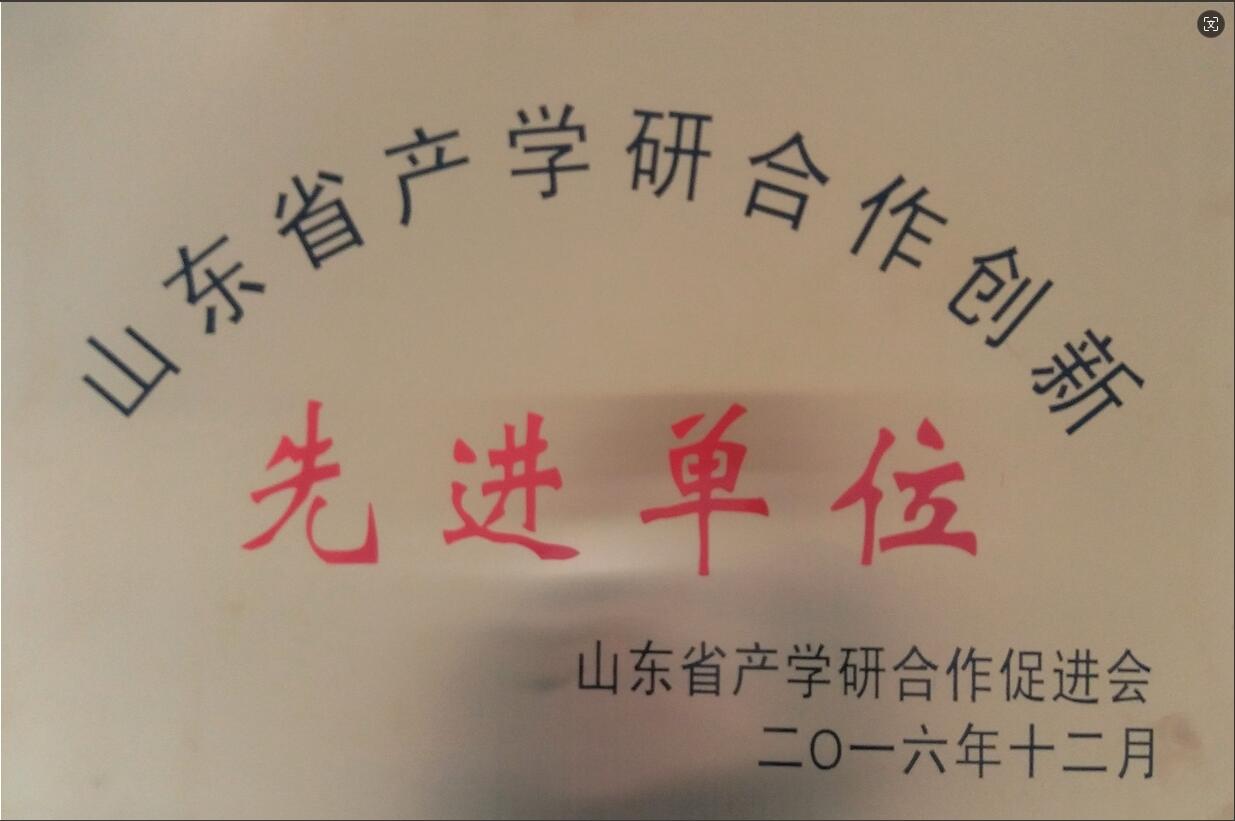 山东省产学研合作创新
先进单位
山东省产学研合作促进会
二〇一六年十二月